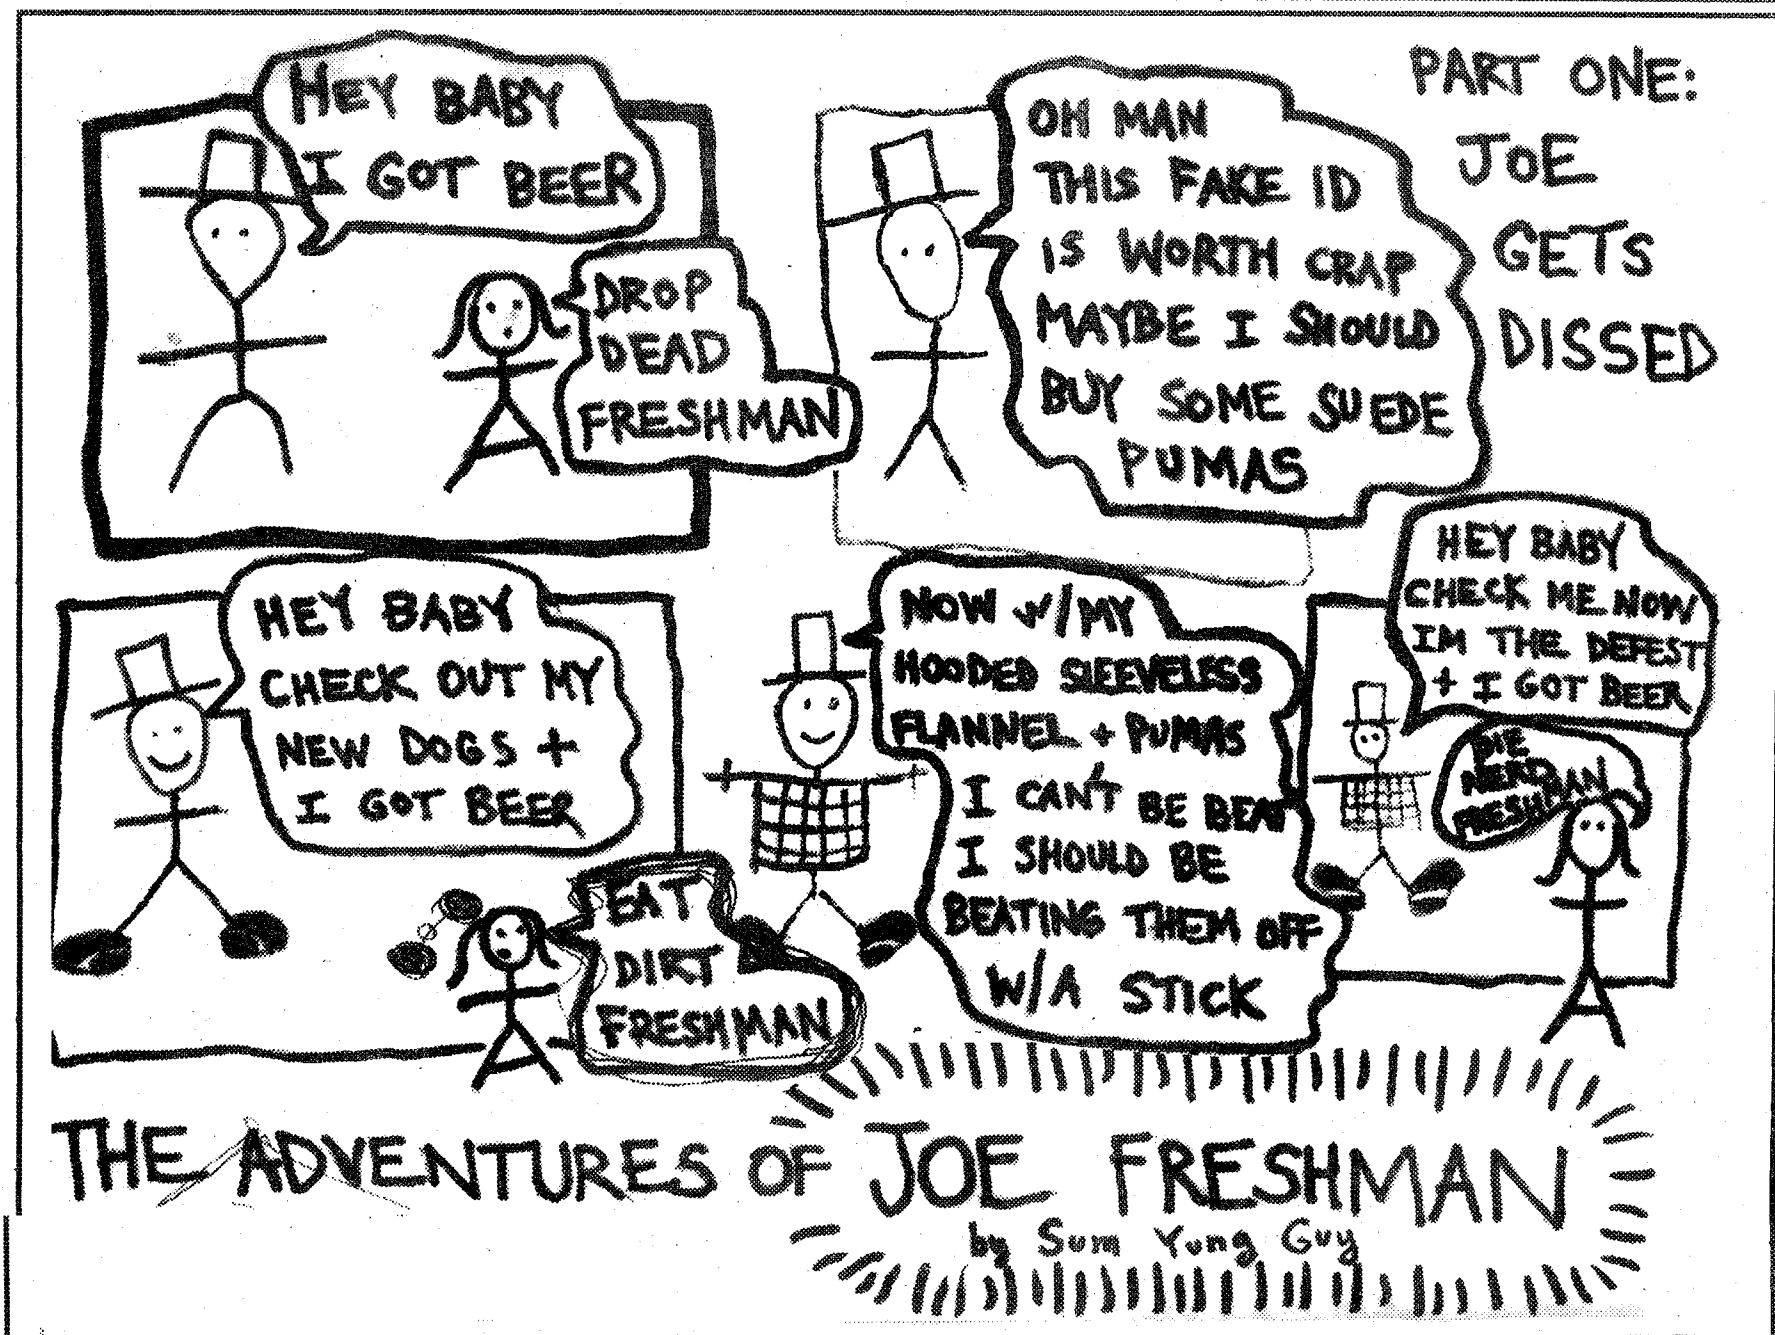 HEY BABY
I GOT BEER
DROP
DEAD
FRESHMAN
OH MAN
THIS FAKE ID
IS WORTH CRAP
MAYBE I SHOULD
BUY SOME SUEDE
PUMAS
PART ONE:
JOE
GETS
DISSED
HEY BABY
CHECK OUT MY
NEW DOGS +
I GOT BEER
EAT
DIRT
FRESHMAN
NOW W/MY
HOODED SLEEVELESS
FLANNEL + PUMAS
I CAN'T BE BEAT
I SHOULD BE
BEATING THEM OFF
W/A STICK
HEY BABY
CHECK ME NOW
IM THE DEFEST
+ I GOT BEER
DIE
NERD
FRESHMAN
THE ADVENTURES OF JOE FRESHMAN
by Sum Yung Guy